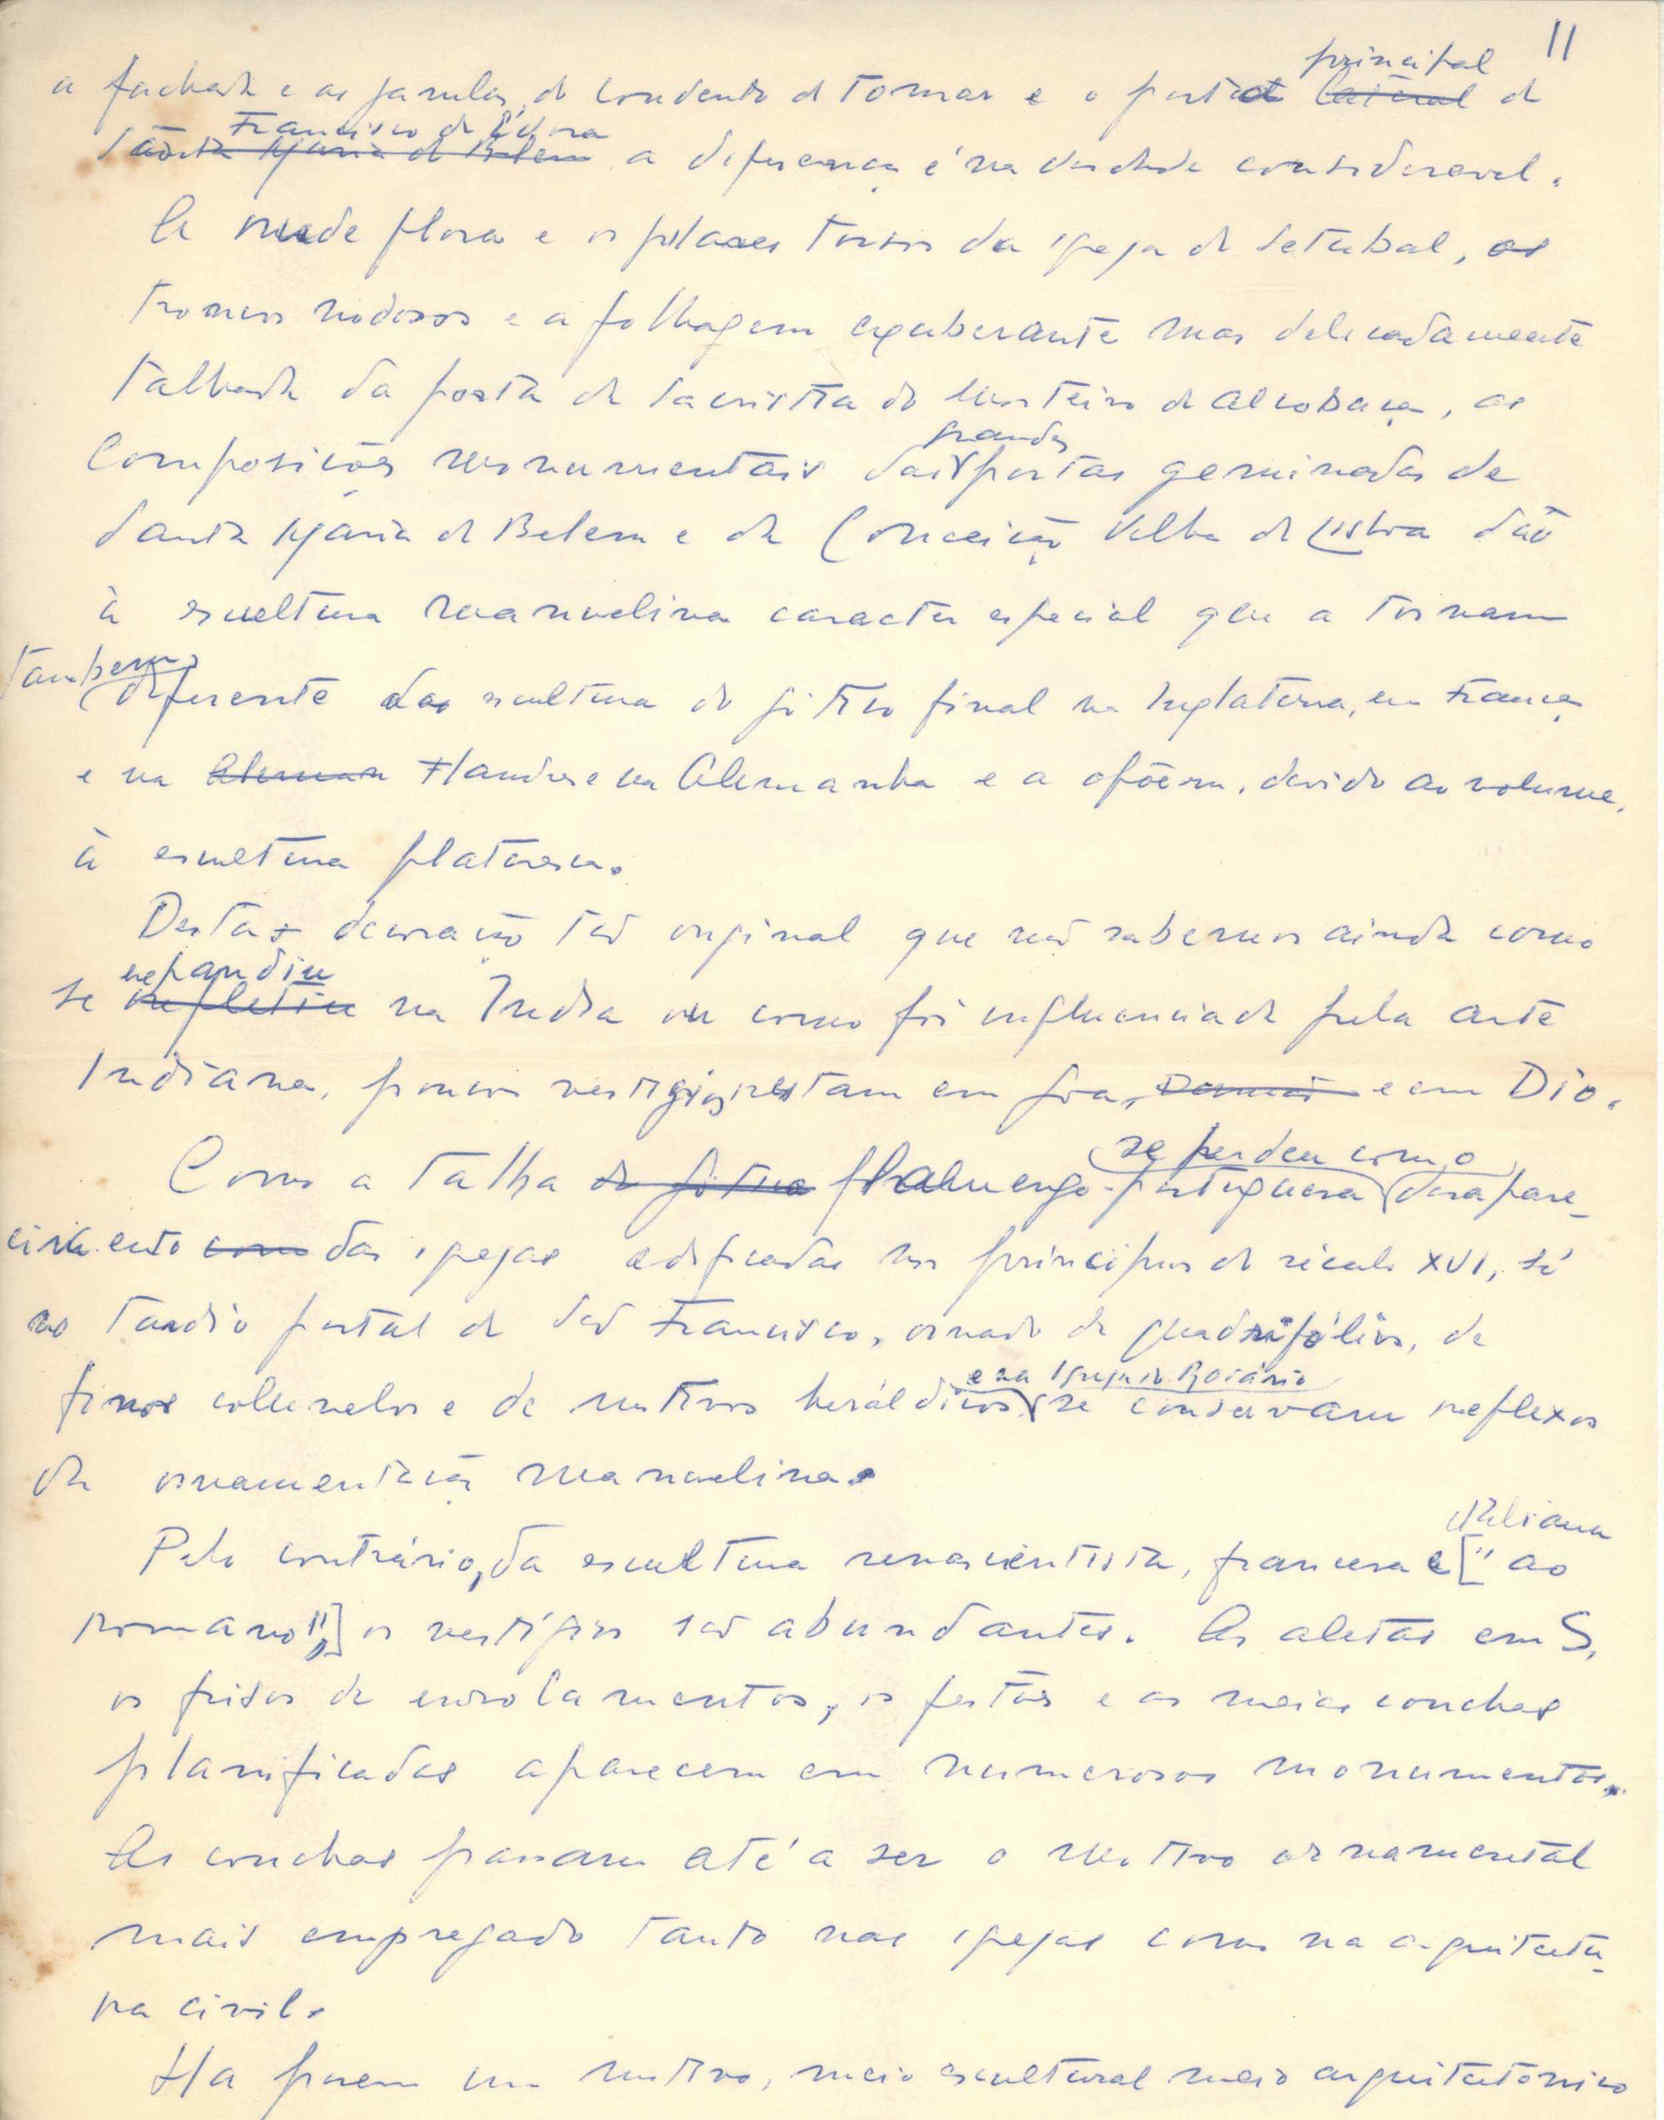 11
principal
a fachada e as janelas do convento de Tomar e o portal lateral de
Francisco de Évora
São Santa Maria de Belem a diferença é na verdade consideravel.
A rude flora e os pilares torsos da igreja de Setubal, os
troncos nodosos e a folhagem exuberante mas delicadamente
talhada da porta da sacristia do Mosteiro de Alcobaça, as
grandes
composições monumentais das portas geminadas de
Santa Maria de Belem e da Conceição Velha de Lisboa dão
à escultura manuelina caracter especial que a tornam
tambem
diferente da escultura do gótico final na Inglaterra, em França
e na Aleman Flandres e na Alemanha e a opõem, devido ao volume,
à escultura plateresca.
Desta decoração tão original que não sabemos ainda como
expandiu
se refletiu na India ou como foi influenciada pela arte
Indiana, poucos vestigios restam em Goa, Damão e em Dio.
se perdeu com o
Como a talha do gótico flamengo-portuguesa desapare-
cimento com das igrejas edificadas nos principios do século XVI, só
no tardio portal de São Francisco, ornado de quadrifólios, de
e na Igreja do Rosário
finos colunelos e de motivos heráldicos se conservam reflexos
da ornamentação manuelina.
italiana
Pelo contrário, da escultura renascentista, francesa e ["ao
romano"] os vestígios são abundantes. As aletas em S,
os frisos de enrolamentos, os festões e as meias conchas
planificadas aparecem em numerosos monumentos.
As conchas passam até a ser o motivo ornamental
mais empregado tanto nas igrejas como na arquitectu-
ra civil.
Ha porem um motivo, meio escultural meio arquitectónico